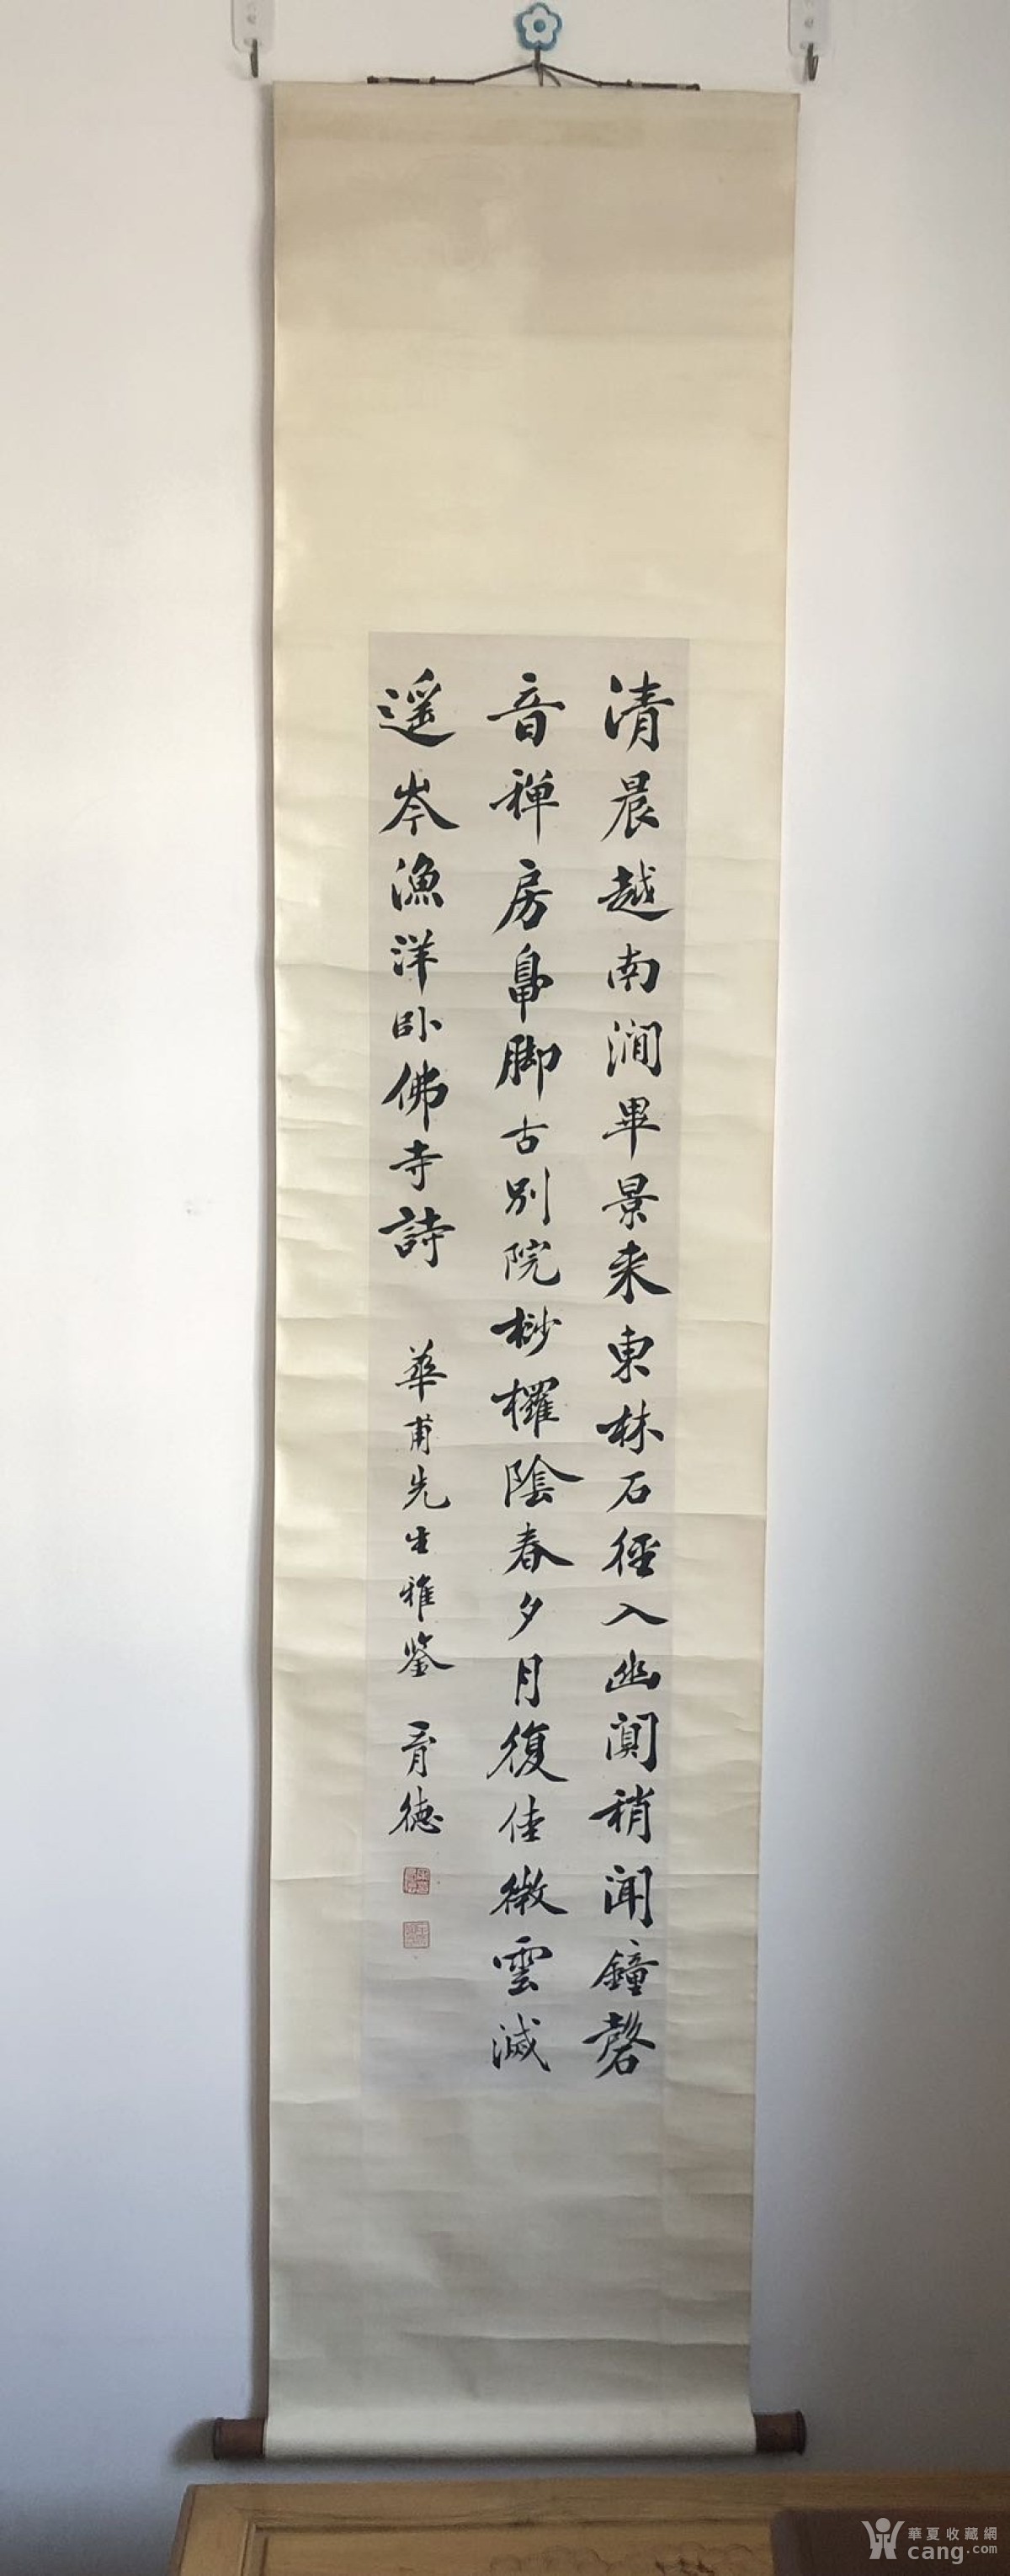 清晨越南澗畢景来東林石徑入幽闃稍闻鐘磬
音禅房阜脚古别院桫欏陰春夕月復佳微雲滅
遥岑漁洋卧佛寺詩 華甫先生雅鉴 育德
華夏收藏網
cang.com